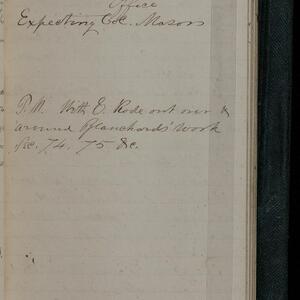 Office
Expecting Col. Mason
P.M. With E. Rode out over &
around Blanchards' work
Sec. 74, 75 &c.